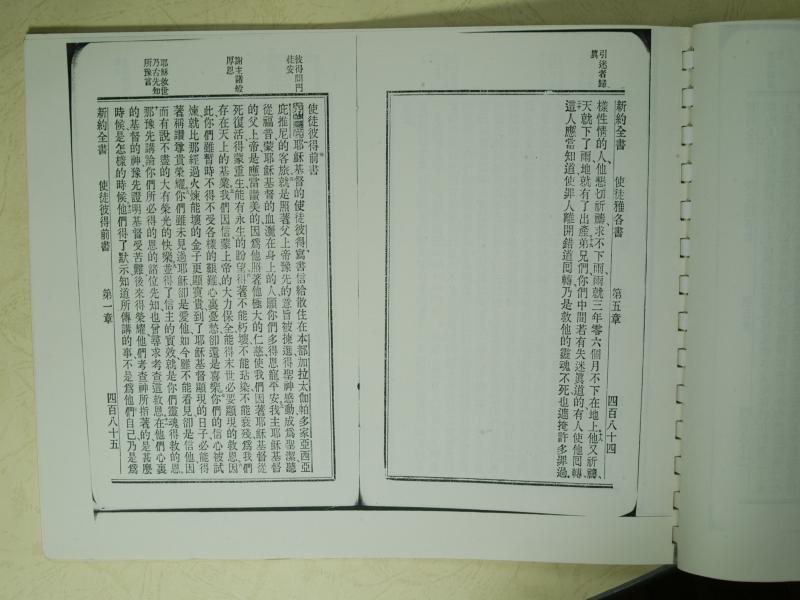 引迷者歸
眞
新約全書 使徒雅各書 第五章 四百八十四
樣性情的人他懇切祈禱求不下雨雨就三年零六個月不下在地上他又祈禱
天就下了雨地就有了出產弟兄們你們中間若有失迷眞道的有人使他回轉
這人應當知道使罪人離開錯道回轉乃是救他的靈魂不死也遮掩許多罪過
彼得問門
徒安
謝主諸般
厚恩
耶穌救世
乃古先知
所豫言
使徒彼得前書
耶穌基督的使徒彼得寫書信給散住在本都加拉太伽帕多家亞西亞
庇推尼的客旅就是照著父上帝豫先的意旨被揀選得聖神感動成爲聖潔聽
從福音蒙耶穌基督的血灑在身上的人願你們多得恩寵平安我主耶穌基督
的父上帝是應當讚美的因爲他照著他極大的仁慈使我們因著耶穌基督從
死復活得蒙重生能有永生的盼望得著不能朽壞不能玷染不能衰殘爲我們
存在天上的基業我們因信蒙上帝的大力保全能得末世必要顯現的救恩因
此你們雖暫時不得不受各樣的艱難心裏憂愁卻還是喜樂你們的信心被試
煉就比那經過火煉能壞的金子更顯寶貴到了耶穌基督顯現的日子必能得
著稱讚尊貴榮耀你們雖未見過耶穌卻是愛他如今雖不能看見卻是信他因
而有說不盡的大有榮光的快樂並得了信主的實效就是你們靈魂得救的恩
那豫先講論你們所必得的恩的諸位先知也曾尋求考查這救恩在他們心裏
的基督的神豫先證明基督受苦難後來得榮耀他們考查神所指著的是甚麼
時候是怎樣的時候他們得了默示知道所傳講的事不是爲他們自己乃是爲
新約全書 使徒彼得前書 第一章 四百八十五